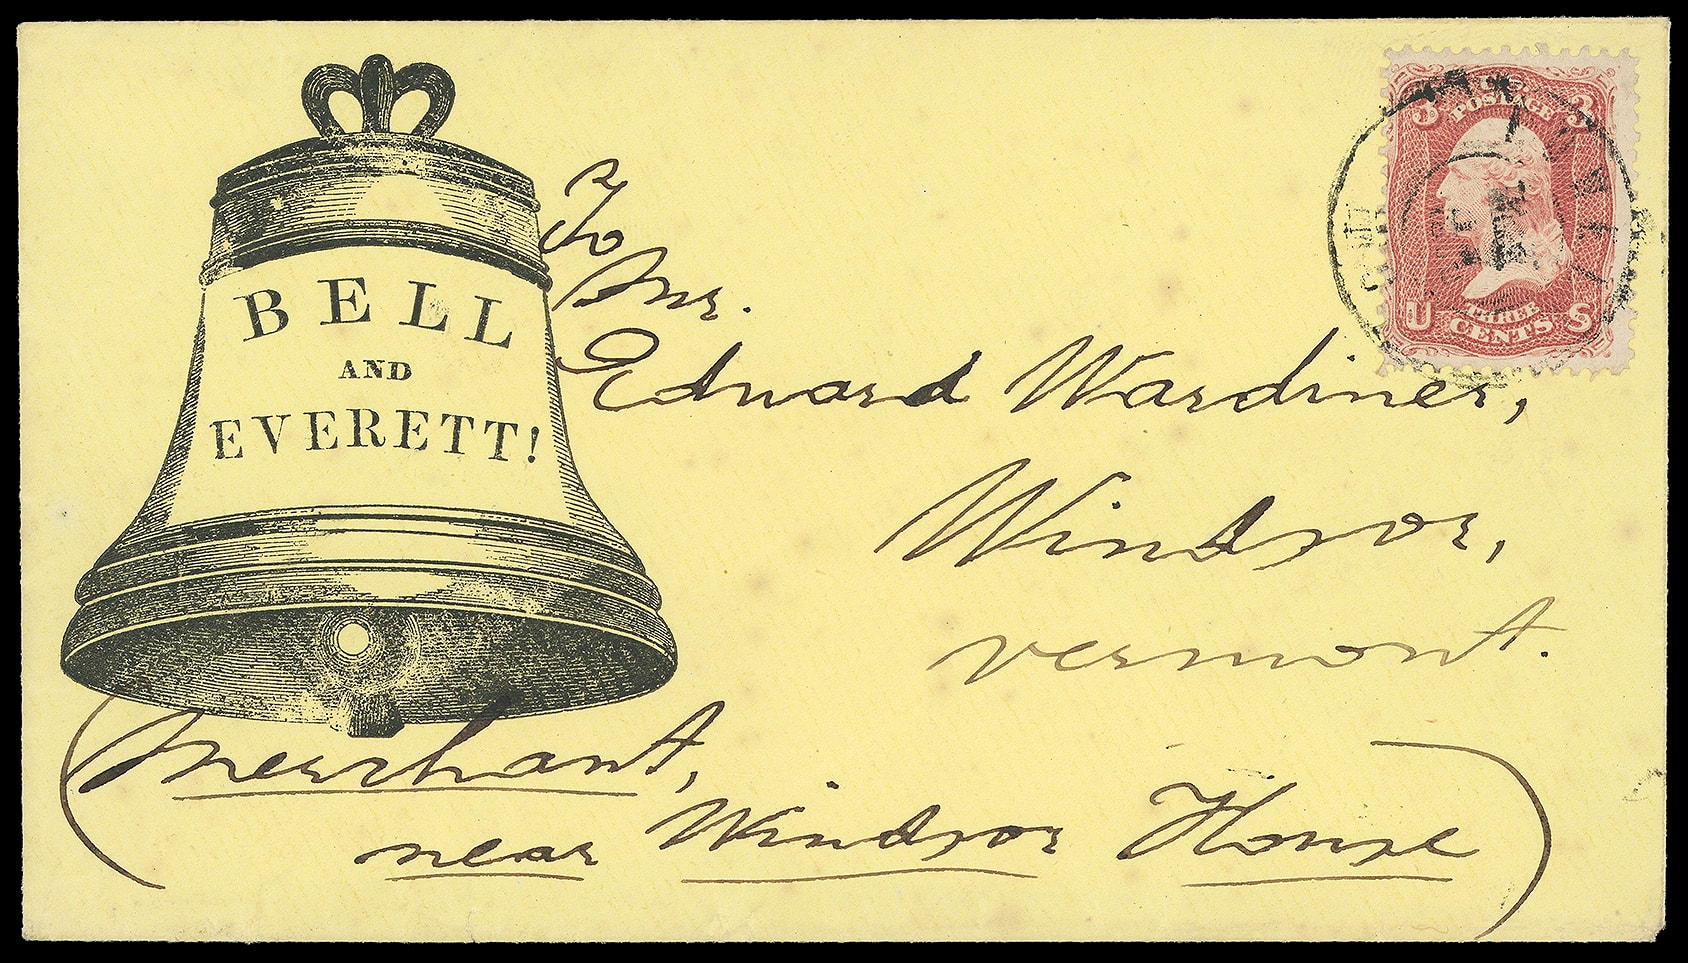 BELL
AND
EVERETT!
To
Mr.
Edward Wardiner,
Windsor,
Vermont.
(Merchant,
near Windsor House)
3 POSTAGE 3
U THREE S
CENTS